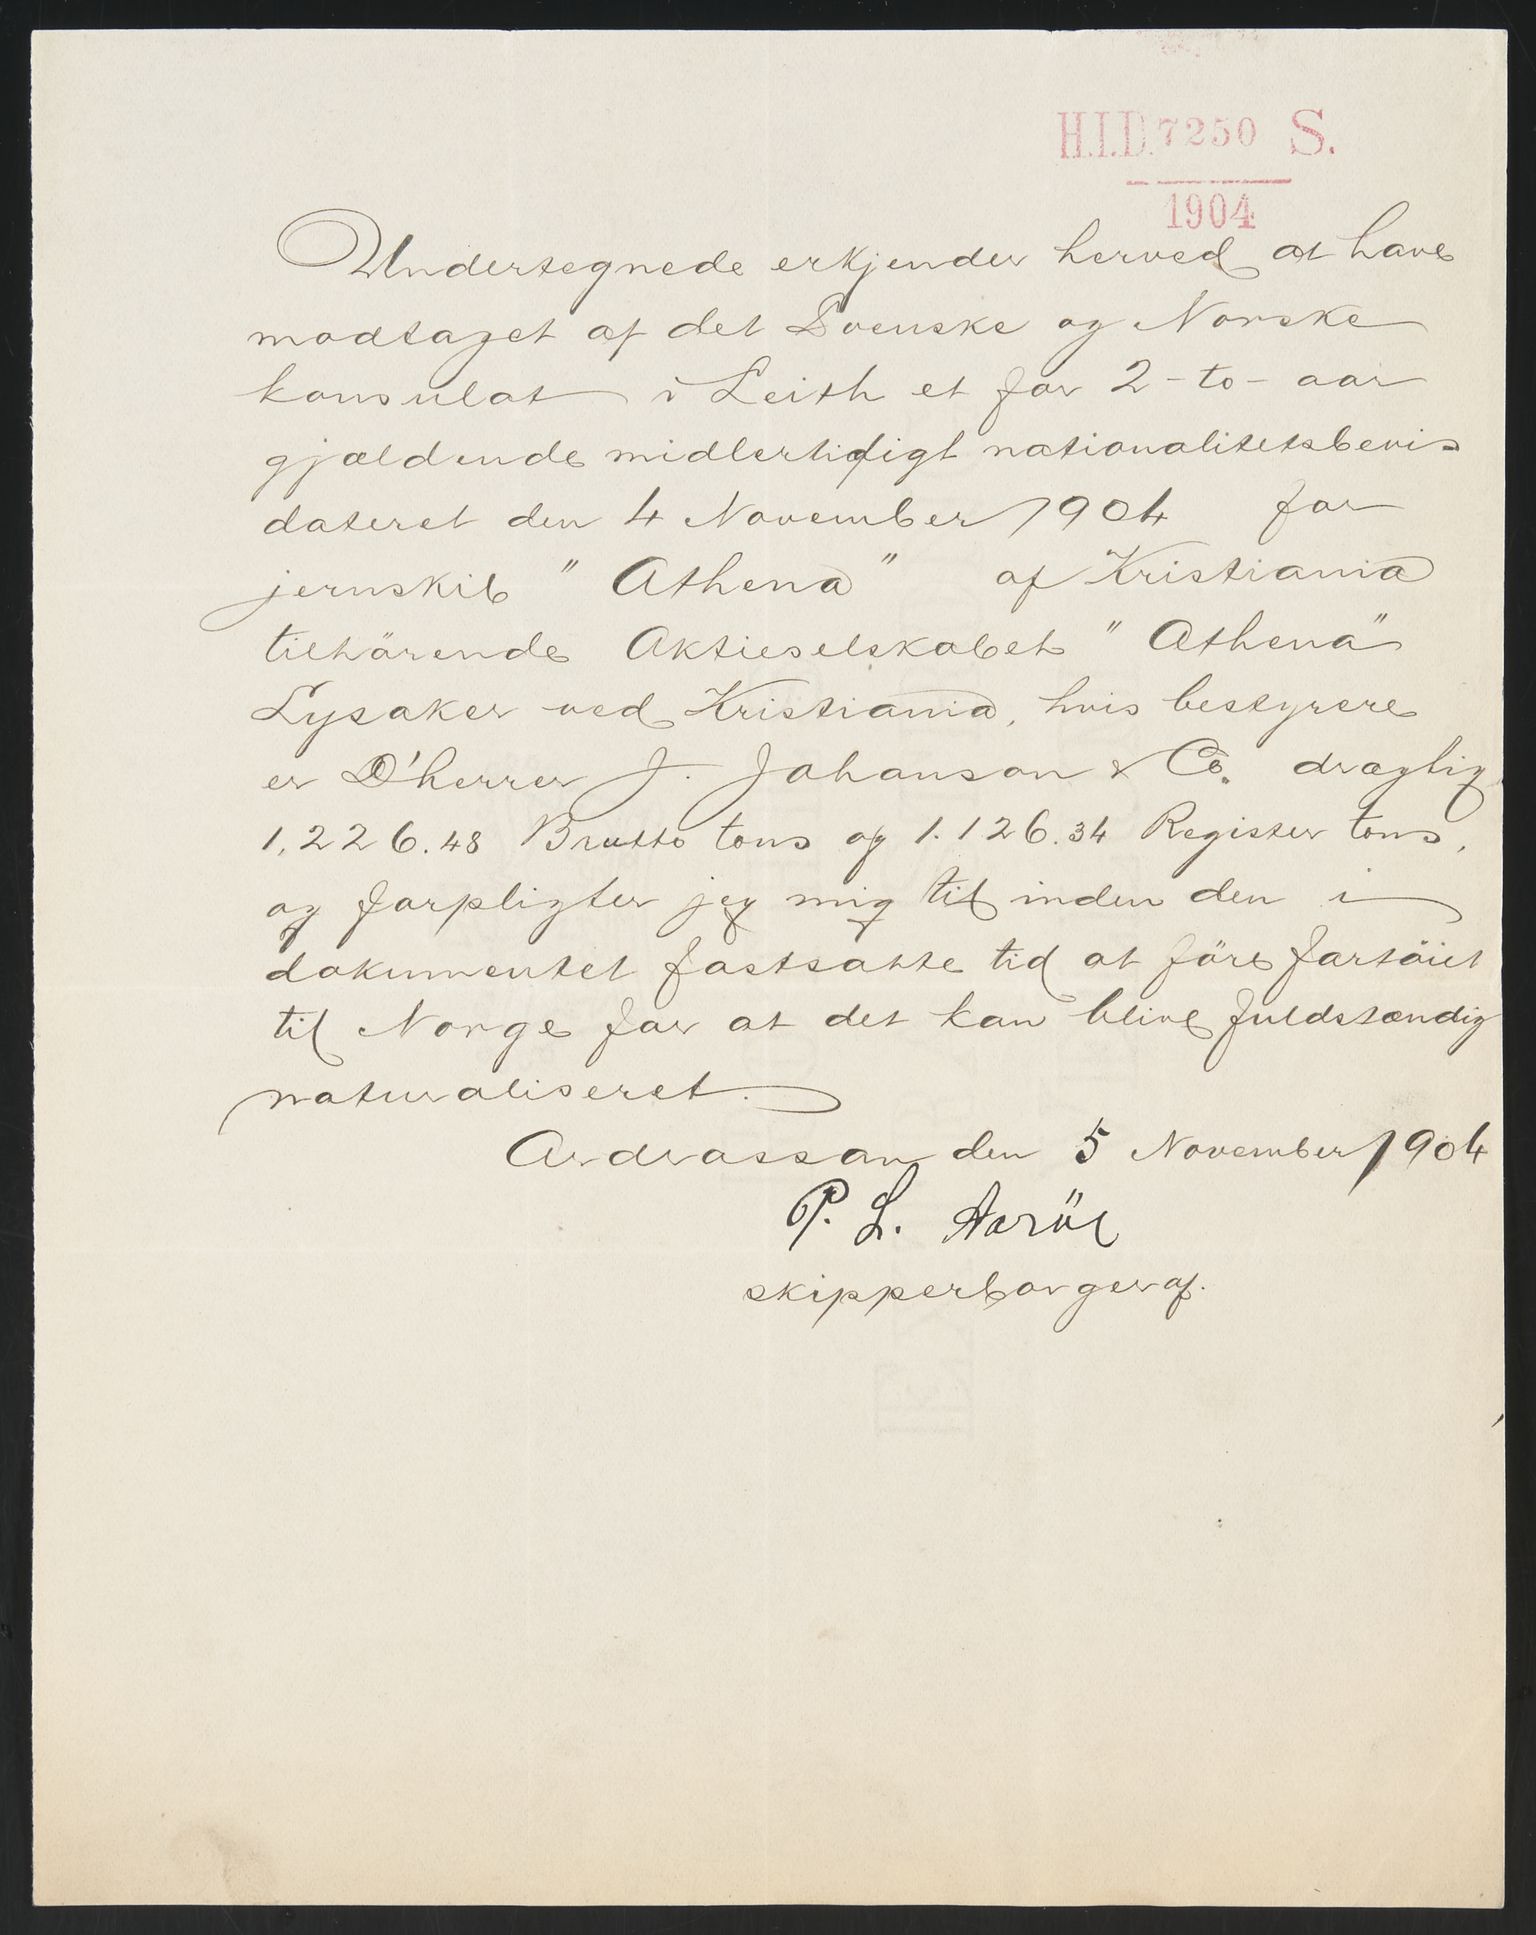 H.I.D. 7250 S.
1904
Undertegnede erkjender herved at have
modtaget af det Svenske og Norske
konsulat i Leith et for 2 - to - aar
gjældende midlertidigt nationalitetsbevis
dateret den 4 November 1904 for
jernskib " Athena " af Kristiania
tilhörende Aktieselskabet " Athena "
Lysaker ved Kristiania, hvis bestyrere
er D'herrer J. Johanson & Co. drægtig
1,226.48 Brutto tons og 1.126.34 Register tons,
og forpligter jeg mig til inden den i
dokumentet fastsatte tid at före fartöiet
til Norge for at det kan blive fuldstændig
naturaliseret.
Ardrossan den 5 November 1904
P. L.
skipperborger af.